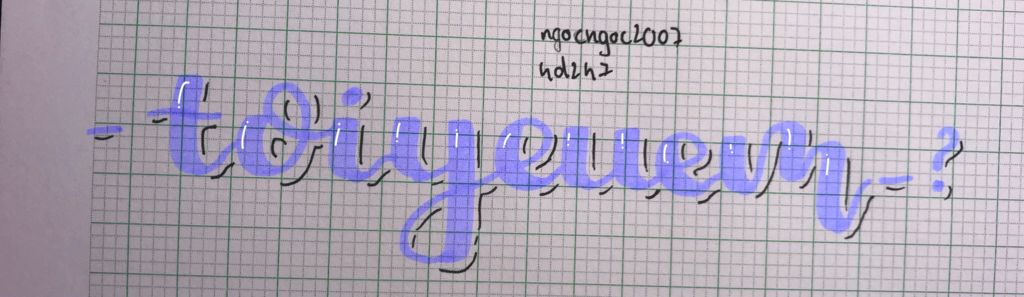 ngocngoc2007
hd2h7
- toiyeuem - ?